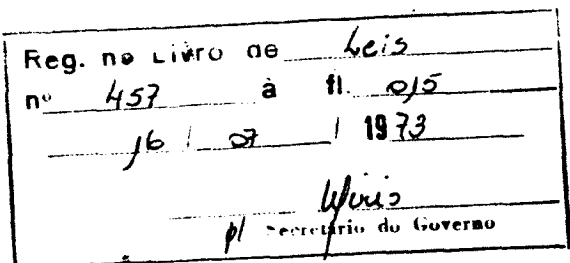 Reg. no Livro de Leis
nº 457 à fl. 015
16 / 07 / 1973
p/ Secretário do Governo